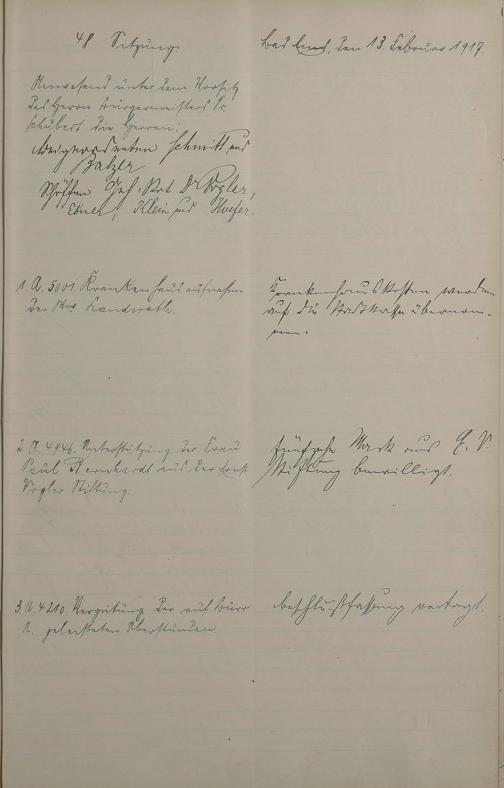 48 Sitzung.
Bad Ems, den 13 Februar 1917.
Anwesend unter dem Vorsitz
des Herrn Bürgermeisters Dr
Schubert die Herren:
Beigeordneten Schmitt und
Balzer
Schöffen Geh. Rat Dr Vogler,
Ebner, Klein und Huefer.
1 A. 5001 Krankenhausaufnahme
der Landrath.
Krankenhauskosten werden
auf die Stadtkasse übernom-
men.
2. A. 4946. Unterstützung der Frau
Paul Bernhardt aus der Ernst
Vogler Stiftung.
fünfzehn Mark aus E. V.
Stiftung bewilligt.
3. A 4210. Vergütung der auf Büro
geleisteten Überstunden
Beschlußfassung vertagt.